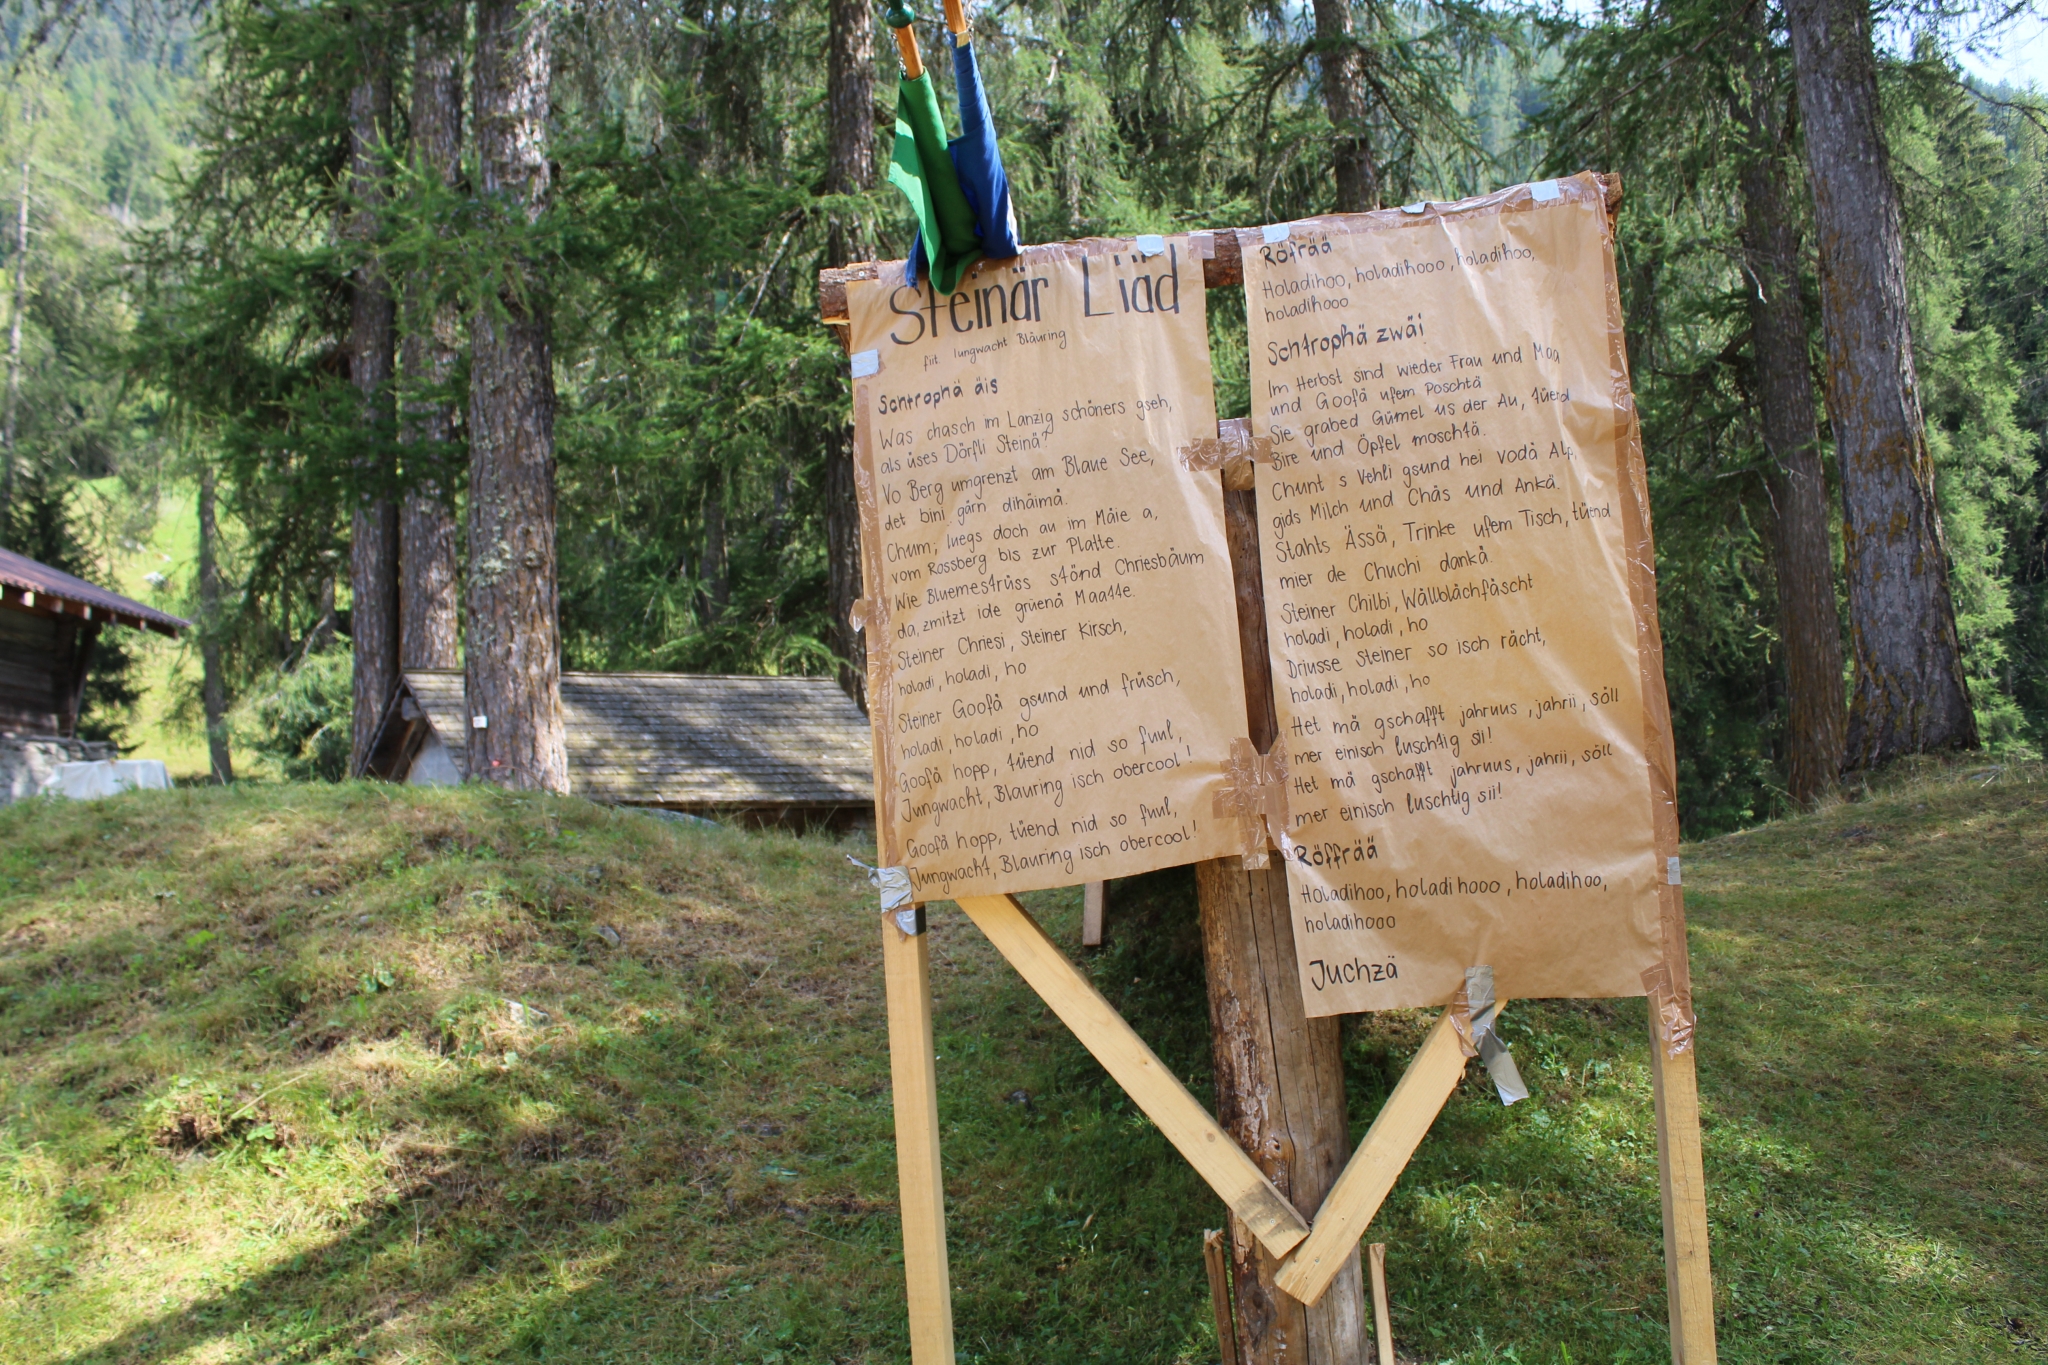 Steinär Liäd
fiit. Jungwacht Bläuring
Schtrophä äis
Was chasch im Lanzig schöners gseh,
als üses Dörfli Steinä?
Vo Berg umgrenzt am Blaue See,
det bini gärn dihäimä.
Chum, luegs doch au im Mäie a,
vom Rossberg bis zur Platte.
Wie Bluemestrüss stönd Chriesbäum
da, zmitzt ide grüenä Maatte.
Steiner Chriesi, Steiner Kirsch,
holadi, holadi, ho
Steiner Goofä gsund und früsch,
holadi, holadi, ho
Goofä hopp, tüend nid so fuul,
Jungwacht, Blauring isch obercool!
Goofä hopp, tüend nid so fuul,
Jungwacht, Blauring isch obercool!
Röfrää
Holadihoo, holadihooo, holadihoo,
holadihooo
Schtrophä zwäi
Im Herbst sind wieder Frau und Maa
und Goofä ufem Poschtä
Sie grabed Gümel us der Au, tüend
Bire und Öpfel moschtä.
Chunt s Vehli gsund hei vodä Alp,
gids Milch und Chäs und Ankä.
Stahts Ässä, Trinke ufem Tisch, tüend
mier de Chuchi dankä.
Steiner Chilbi, Wällblächfäscht
holadi, holadi, ho
Driusse Steiner so isch rächt,
holadi, holadi, ho
Het mä gschafft jahruus, jahrii, söll
mer einisch luschtig sii!
Het mä gschafft jahruus, jahrii, söll
mer einisch luschtig sii!
Röffrää
Holadihoo, holadihooo, holadihoo,
holadihooo
Juchzä